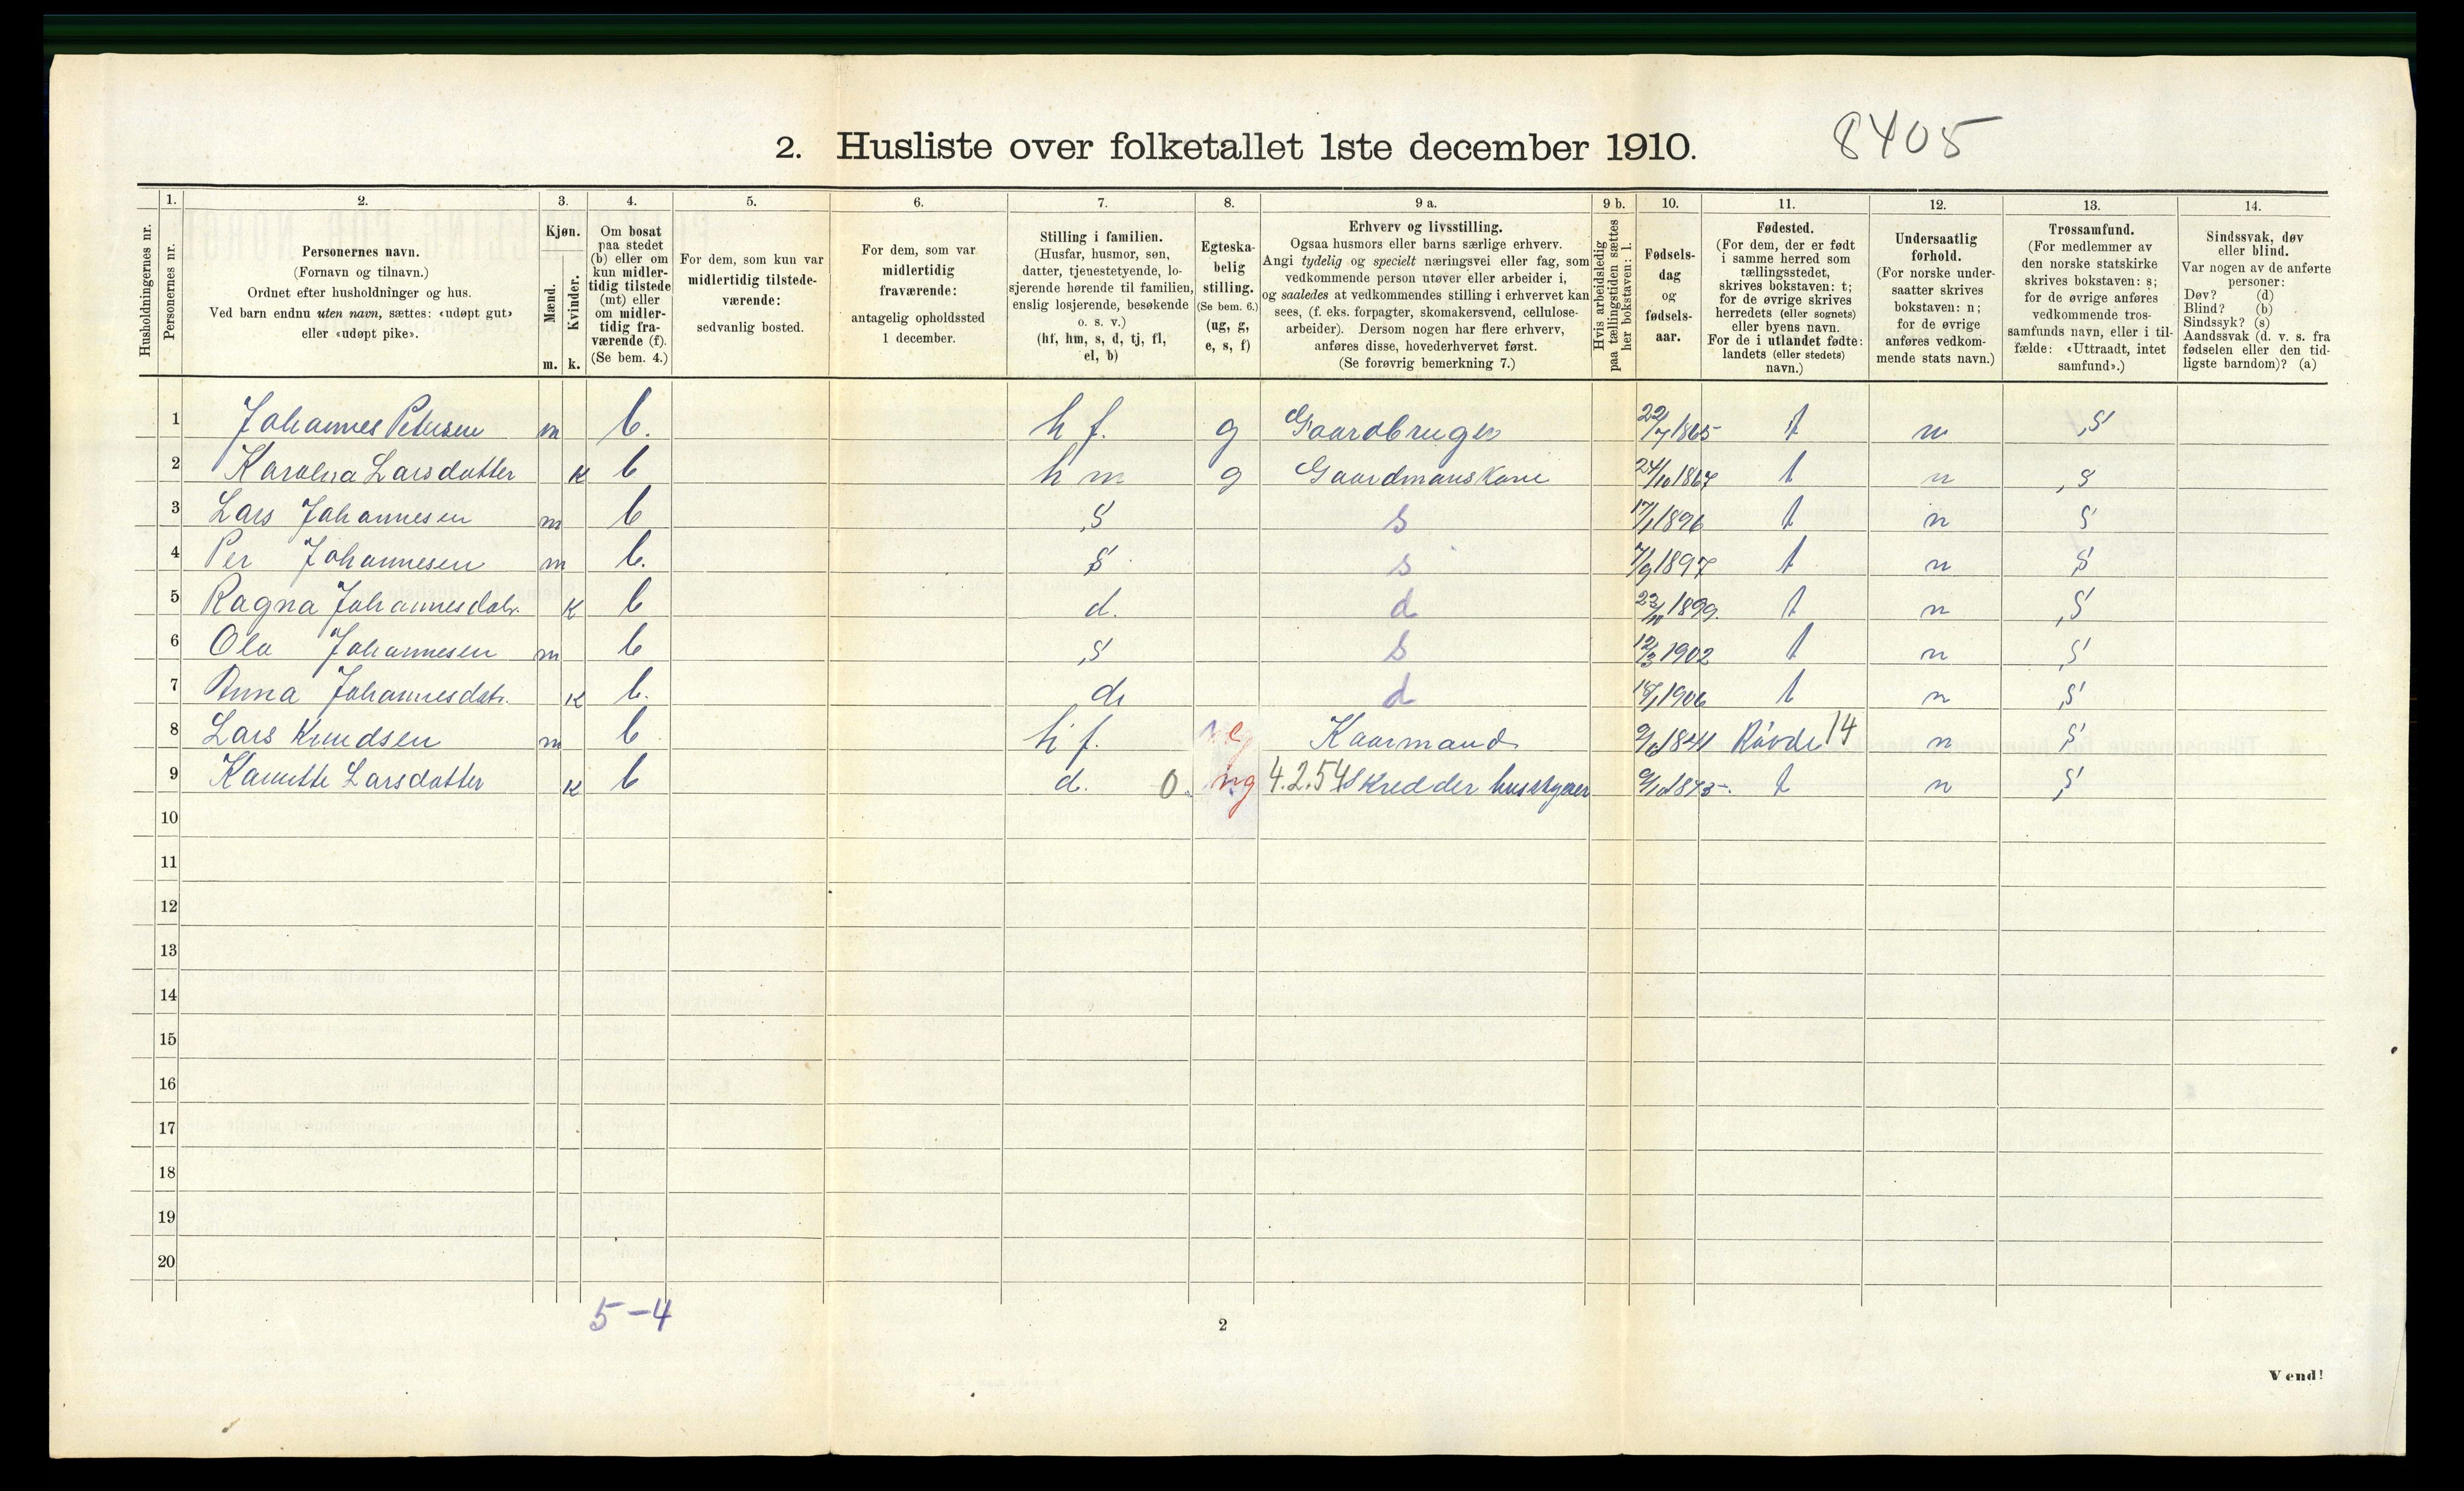 2. Husliste over folketallet 1ste december 1910.
8405
Husholdningernes nr.
1.
Personernes nr.
2.
Personernes navn.
(Fornavn og tilnavn.)
Ordnet efter husholdninger og hus.
Ved barn endnu uten navn, sættes: «udøpt gut»
eller «udøpt pike».
3.
Kjøn.
Mænd.
Kvinder.
m. k.
4.
Om bosat
paa stedet
(b) eller om
kun midler-
tidig tilstede
(mt) eller
om midler-
tidig fra-
værende (f).
(Se bem. 4.)
5.
For dem, som kun var
midlertidig tilstede-
værende:
sedvanlig bosted.
6.
For dem, som var
midlertidig
fraværende:
antagelig opholdssted
1 december.
7.
Stilling i familien.
(Husfar, husmor, søn,
datter, tjenestetyende, lo-
sjerende hørende til familien,
enslig losjerende, besøkende
o. s. v.)
(hf, hm, s, d, tj, fl,
el, b)
8.
Egteska-
belig
stilling.
(Se bem. 6.)
(ug, g,
e, s, f)
9 a.
Erhverv og livsstilling.
Ogsaa husmors eller barns særlige erhverv.
Angi tydelig og specielt næringsvei eller fag, som
vedkommende person utøver eller arbeider i,
og saaledes at vedkommendes stilling i erhvervet kan
sees, (f. eks. forpagter, skomakersvend, cellulose-
arbeider). Dersom nogen har flere erhverv,
anføres disse, hovederhvervet først.
(Se forøvrig bemerkning 7.)
9 b.
Hvis arbeidsledig
paa tællingstiden sættes
her bokstaven: l.
10.
Fødsels-
dag
og
fødsels-
aar.
11.
Fødested.
(For dem, der er født
i samme herred som
tællingsstedet,
skrives bokstaven: t;
for de øvrige skrives
herredets (eller sognets)
eller byens navn.
For de i utlandet fødte:
landets (eller stedets)
navn.)
12.
Undersaatlig
forhold.
(For norske under-
saatter skrives
bokstaven: n;
for de øvrige
anføres vedkom-
mende stats navn.)
13.
Trossamfund.
(For medlemmer av
den norske statskirke
skrives bokstaven: s;
for de øvrige anføres
vedkommende tros-
samfunds navn, eller i til-
fælde: «Uttraadt, intet
samfund».)
14.
Sindssvak, døv
eller blind.
Var nogen av de anførte
personer:
Døv? (d)
Blind? (b)
Sindssyk? (s)
Aandssvak (d. v. s. fra
fødselen eller den tid-
ligste barndom)? (a)
1 Johannes Petersen m b. hf. g Gaardbruger 22/7 1865 t n s
2 Karolna Larsdatter k b hm g Gaardmanskone 24/10 1867 t n s
3 Lars Johannesen m b s s 17/1 1896 t n s
4 Per Johannesen m b. s s 7/9 1897 t n s
5 Ragna Johannesdatr. k b d. d 23/11 1899. t n s
6 Ola Johannesen m b s s 12/3 1902 t n s
7 Anna Johannesdatr. k b. d d 1906 t n s
8 Lars Knudsen m b hf. e Kaarmand 1841 Røvde 14 n s
9 Larsdatter k b d. 0. ug 4.2.54 Skredder 1873 t n s
10
11
12
13
14
15
16
17
18
19
20
5-4
2
Vend!